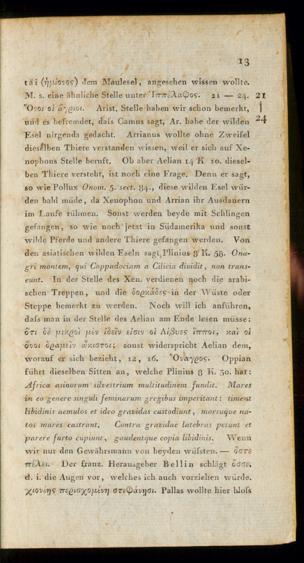 13
τάἱ (ἡμίονος) dem Maulesel, angesehen wissen wollte.
M. s. eine ähnliche Stelle unter Ἱππέλαφος. 21 — 24. 21
Ὄνοι οἱ ἄγριοι. Arist. Stelle haben wir schon bemerkt, |
und es befremdet, daſs Camus sagt, Ar. habe der wilden 24
Esel nirgends gedacht. Arrianus wollte ohne Zweifel
dieselben Thiere verstanden wissen, weil er sich auf Xe-
nophons Stelle beruft. Ob aber Aelian 14 K 10. diesel-
ben Thiere versteht, ist noch eine Frage. Denn er sagt,
so wie Pollux Onom. 5. sect. 84., diese wilden Esel wür-
den bald müde, da Xenophon und Arrian ihr Ausdauern
im Laufe rühmen. Sonst werden beyde mit Schlingen
gefangen, so wie noch jetzt in Südamerika und sonst
wilde Pferde und andere Thiere gefangen werden. Von
den asiatischen wilden Eseln sagt Plinius 8 K. 58. Ona-
gri montem, qui Cappadociam a Cilicia dividit, non trans-
eunt. In der Stelle des Xen. verdienen noch die arabi-
schen Treppen, und die δορκάδες in der Wüste oder
Steppe bemerkt zu werden. Noch will ich anführen,
daſs man in der Stelle des Aelian am Ende lesen müsse:
ὅτι δὲ μικροὶ μὲν ἰδεῖν εἰσιν οἱ Λίβυες ἵπποι, καὶ οἱ
ὄνοι δραμεῖν ὤκιστοι; sonst widerspricht Aelian dem,
worauf er sich bezieht, 12, 16. Ὄναγρος. Oppian
führt dieselben Sitten an, welche Plinius 8 K. 30. hat:
Africa asinorum silvestrium multitudinem fundit. Mares
in eo genere singuli feminarum gregibus imperitant: timent
libidinis aemulos et ideo gravidas custodiunt, morsuque na-
tos mares castrant. Contra gravidae latebras petunt et
parere furto cupiunt, gaudentque copia libidinis. Wenn
wir nur den Gewährsmann von beyden wüſsten. — ὄστε
πέλει. Der franz. Herausgeber Bellin schlägt ὄσσε.
d. i. die Augen vor, welches ich auch vorziehen würde.
χιονέης περισχομένη στεφάνησι. Pallas wollte hier bloſs